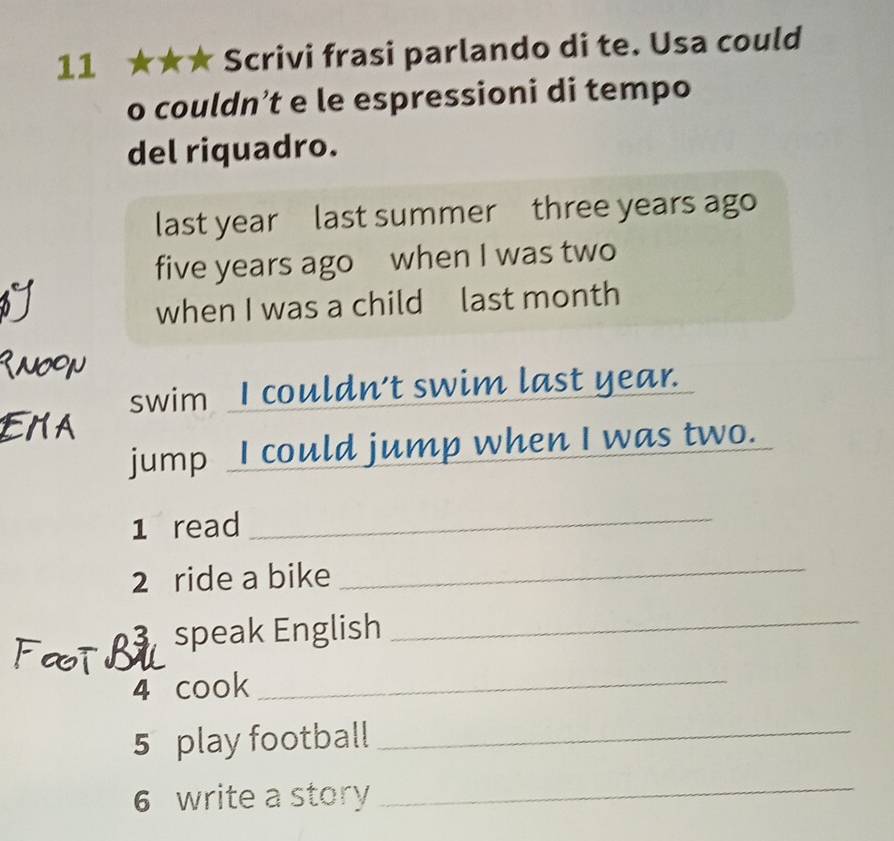 11 ★★★ Scrivi frasi parlando di te. Usa could
o couldn't e le espressioni di tempo
del riquadro.
last year last summer three years ago
five years ago when I was two
when I was a child last month
swim I couldn't swim last year.
jump I could jump when I was two.
1 read
2 ride a bike
3 speak English
FOOTBALL
4 cook
5 play football
6 write a story